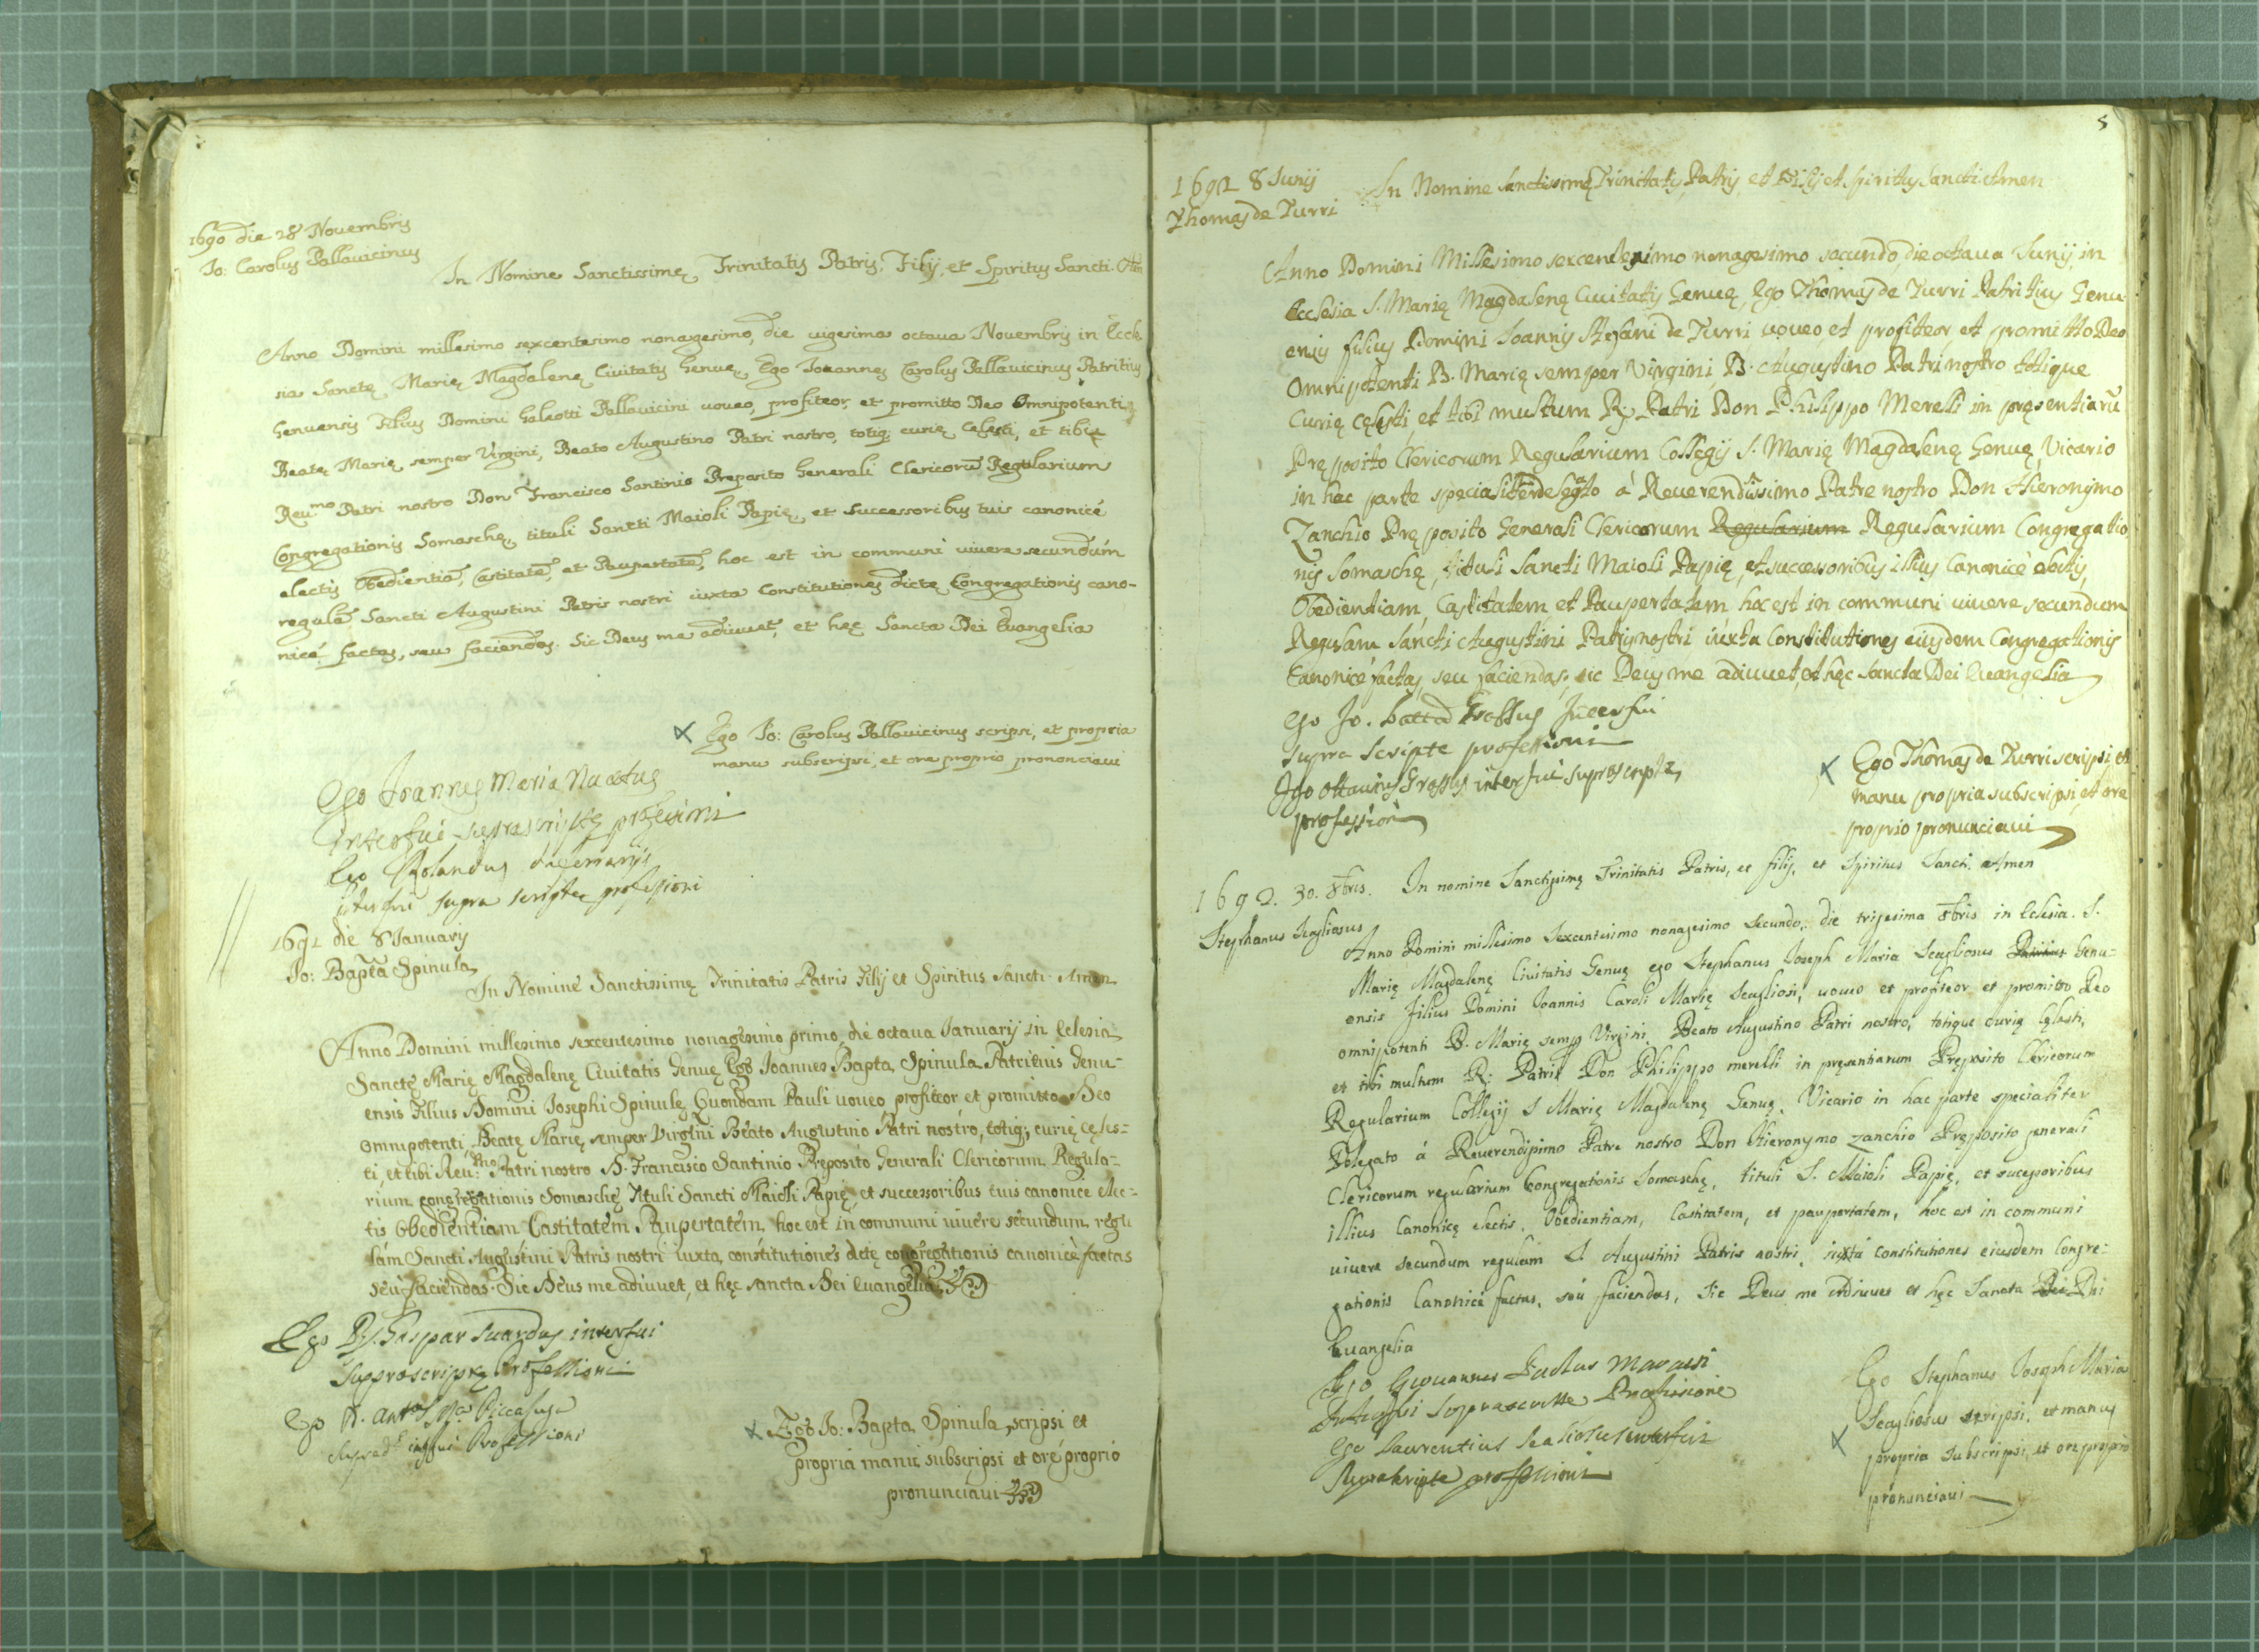 1690 die 28 Novembris
Io: Carolus Pallavicinus
In Nomine Sanctissimę Trinitatis Patris, Filij, et Spiritus Sancti.
Anno Domini millesimo sexcentesimo nonagesimo, die uigesima octaua Novembris in Eccle-
sia Sanctę Marię Magdalenę Civitatis Genuę, Ego Ioannes Carolus Pallauicinus Patritius
Genuensis Filius Domini Galeotti Pallauicini uoueo, profiteor, et promitto Deo Omnipotenti,
Beatę Marię semper Virgini, Beato Augustino Patri nostro, totiq; curię Celesti, et tibi
Reu.mo Patri nostro Don Francisco Santinio Preposito Generali Clericorū Regularium
Congregationis Somaschę, tituli Sancti Maioli Papię, et successoribus tuis canonicé
electis Obedientiā, Castitatē, et Paupertatē, hoc est in communi uiuere secundúm
regulā Sancti Augustini Patris nostri iuxta Constitutiones dictę Congregationis cano-
nicé factas, seu faciendas. Sic Deus me adiuuet, et hęc Sancta Dei Euangelia
Ego Io: Carolus Pallauicinus scripsi, et propria
manu subscripsi, et ore proprio prononciaui
Ego Joannes Maria
interfui suprascriptę professioni
Ego Rolandus
interfui supra scriptę professioni
1691 die 8 Ianuarij
Io: Bapta Spinula
In Nomine Sanctissimę Trinitatis Patris Filij et Spiritus Sancti Amen
Anno Domini millesimo sexcentesimo nonagesimo primo, die octaua Ianuarij in Eclesia
Sanctę Marię Magdalenę Ciuitatis Genuę Ego Ioannes Bapta Spinula Patritius Genu-
ensis Filius Domini Iosephi Spinulę Quondam Pauli uoueo profiteor et promitto Deo
omnipotenti, Beatę Marię semper Virgini Beato Augustino Patri nostro, totiq; curię cęles-
ti, et tibi Reu:mo Patri nostro D. Francisco Santinio Preposito Generali Clericorum Regula-
rium congregationis Somaschę Tituli Sancti Maioli Papię, et successoribus tuis canonice elec-
tis Obedientiam Castitatem Paupertatem hoc est in communi uiuere secundum regu
lam Sancti Augustini Patris nostri iuxta constitutiones dctę congregationis canonicè factas
seu faciendas. Sic Deus me adiuuet, et hęc sancta Dei euangelia
Ego D. Gaspar Suardus interfui
supprascriptę Professioni
Ego D. Antos Ma Riccaluga
interfui Professioni
Ego Io: Bapta Spinula scripsi et
propria manu subscripsi et ore proprio
pronunciaui
5
1692 8 Iunij
Thomas de Turri
In Nomine Sanctissimę Trinitatis Patris et Filij et Spiritus Sancti Amen
Anno Domini Millesimo sexcentesimo nonagesimo secundo, die octaua Iunij, in
Ecclesia S. Marię Magdalenę Ciuitatis Genuę, Ego Thomas de Turri Patritius Genu-
ensis filius Domini Ioannis Stefani de Turri uoueo, et profiteor, et promitto Deo
Omnipotenti B. Marię semper Virgini, B. Augustino Patri nostro totique
Curię cęlesti, et tibi multum R. Patri Don Philippo Merelli in pręsentiarū
Pręposito Clericorum Regularium Collegij S. Marię Magdalenę Genuę, Vicario
in hac parte specialiter delegato á Reuerendissimo Patre nostro Don Hieronymo
Zanchio Pręposito Generali Clericorum Regularium Regularium Congregatio
nis Somaschę, tituli Sancti Maioli Papię, et successoribus illius Canonicè electis,
Obedientiam, Castitatem, et Paupertatem hoc est in communi uiuere secundum
Regulam Sancti Augustini Patris nostri, iuxta Constitutiones eiusdem Congregationis
Canonicè factas, seu faciendas, sic Deus me adiuuet, et hęc Sancta Dei Euangelia
Ego Jo. Batta Grassus Interfui
supra scripte professioni
Ego Ottauius Grassus interfui suprascripte
profession
Ego Thomas de Turri scripsi, et
manu propria subscripsi, et ore
proprio pronunciaui
1692. 30. 8bris. In nomine Sanctissimę Trinitatis Patris, et filij, et Spiritus Sancti. Amen
Stephanus Scagliosus
Anno Domini millesimo Sexcentesimo nonagesimo Secundo, die trigesima 8bris in Eclesia. S.
Marię Magdalenę Ciuitatis Genuę ego Stephanus Ioseph Maria Scagliosus Patritius Genu-
ensis Filius Domini Ioannis Caroli Marię Scagliosi, uoueo et profiteor, et promitto Deo
omnipotenti B. Marię semp Virgini, Beato Augustino Patri nostro, totique curię Cęlesti,
et tibi multum R: Patri Don Philippo merelli in pręsentiarum Pręposito Clericorum
Regularium Collegij S Marię Magdalenę Genuę, Vicario in hac parte specialiter
Delegato á Reuerendissimo Patre nostro Don Hieronymo Zanchio Pręposito generali
Clericorum regularium Congregationis Somaschę, tituli S. Maioli Papię, et sucessoribus
illius Canonicę electis, Obedientiam, Castitatem, et paupertatem, hoc est in communi
uiuere secundum regulam S Augustini Patris nostri, iuxta constitutiones eiusdem Congre-
gationis Canonicé factas, seu faciendas, Sic Deus me Adiuuet et hęc Sancta Dei Dei
Euangelia
Ego Giouannes Paulus
Ego Laurentius interfui
Ego Stephanus Ioseph Maria
Scagliosus scripsi, et manus
propria subscripsi, et ore proprio
pronunciaui